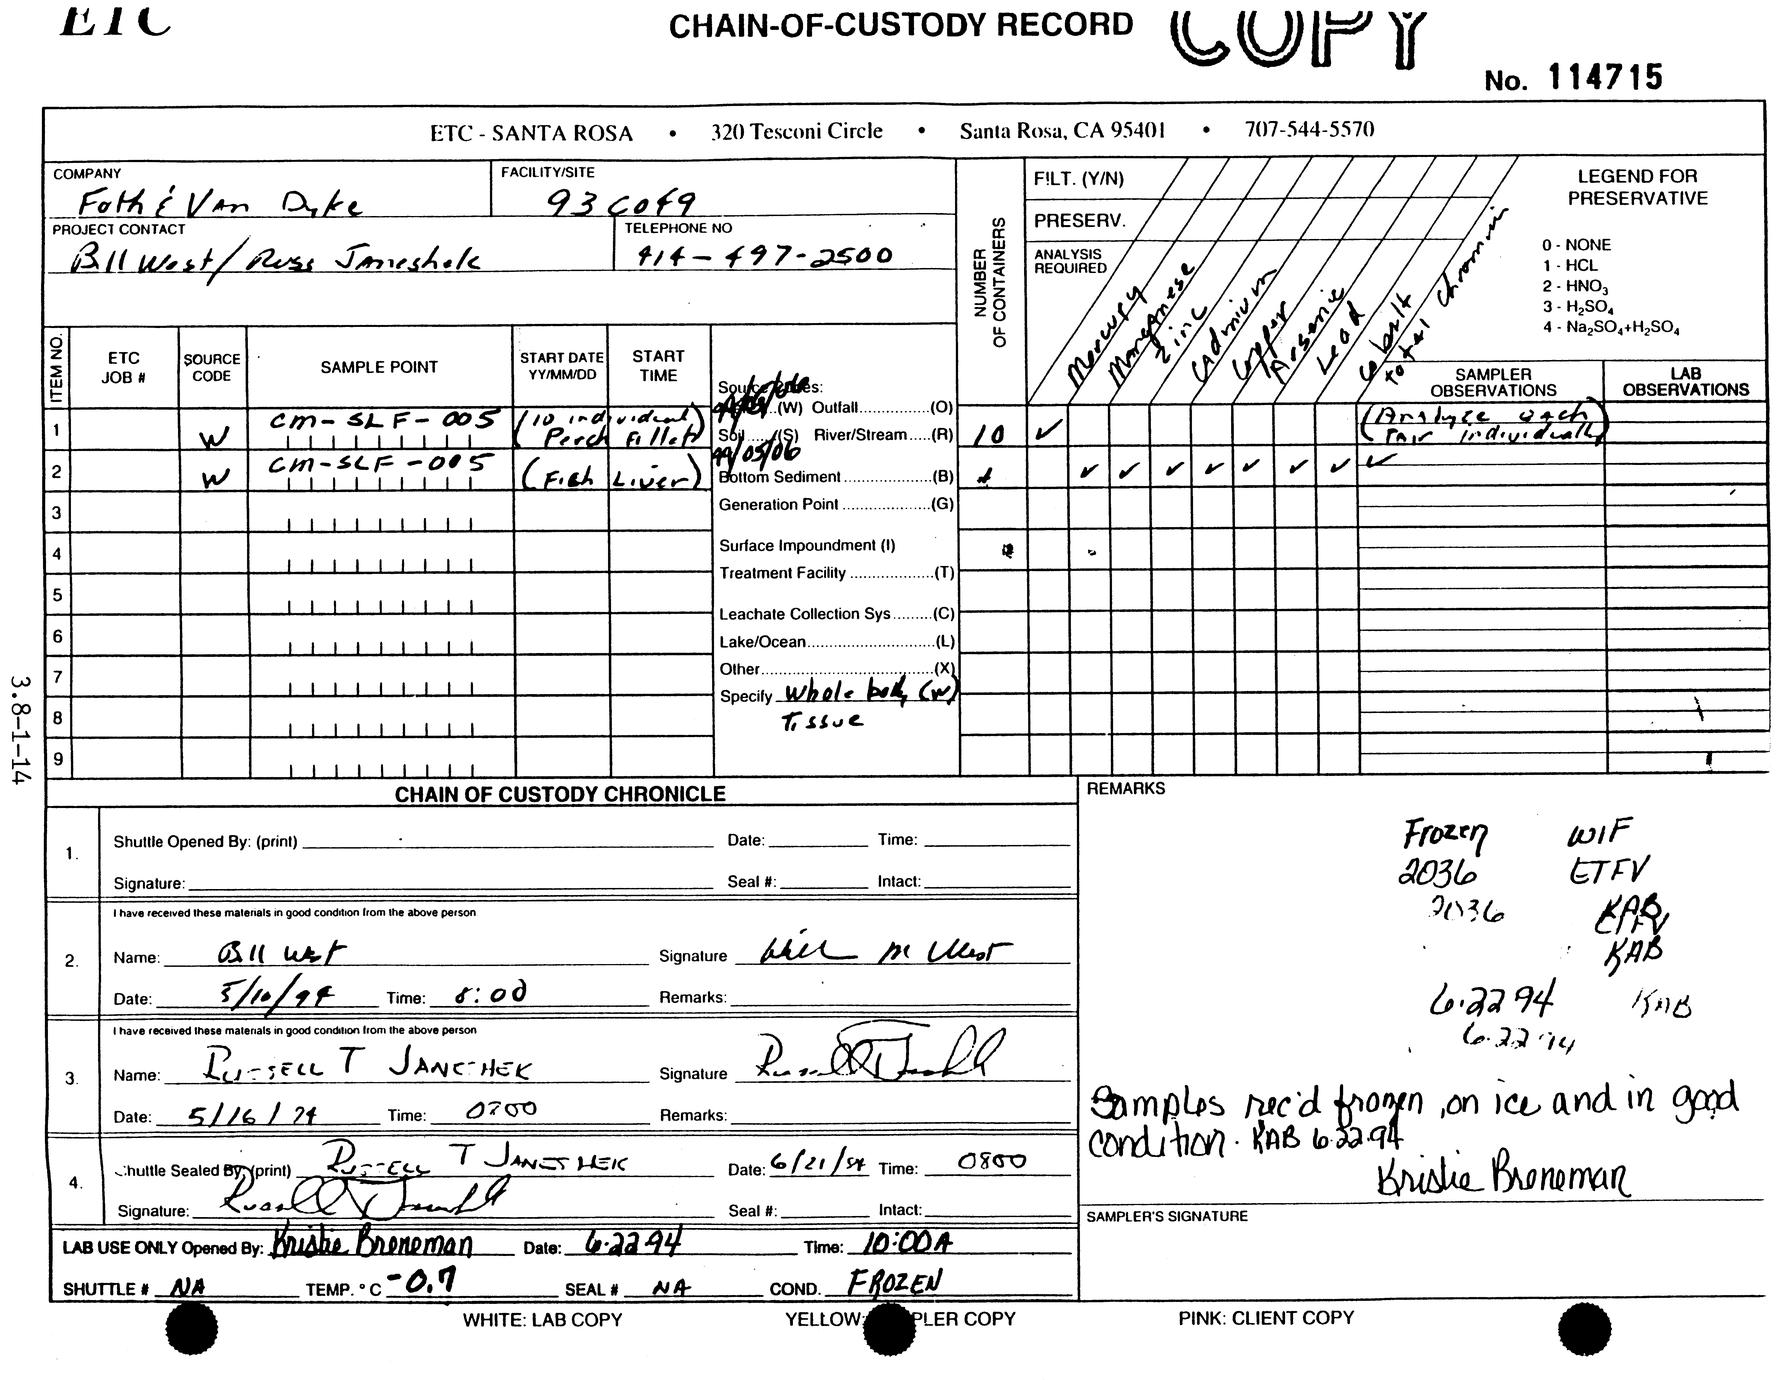 ETC
CHAIN-OF-CUSTODY RECORD
COPY
No. 114715
ETC - SANTA ROSA • 320 Tesconi Circle • Santa Rosa, CA 95401 • 707-544-5570
COMPANY
Foth & Van Dyke
FACILITY/SITE
93C049
PROJECT CONTACT
Bill West / Russ Janeshek
TELEPHONE NO
414-497-2500
NUMBER OF CONTAINERS
FILT. (Y/N)
PRESERV.
ANALYSIS REQUIRED
Mercury
Manganese
Zinc
Cadmium
Copper
Arsenic
Lead
Cobalt
total chromium
LEGEND FOR
PRESERVATIVE
0 - NONE
1 - HCL
2 - HNO3
3 - H2SO4
4 - Na2SO4+H2SO4
ITEM NO.
ETC JOB #
SOURCE CODE
SAMPLE POINT
START DATE YY/MM/DD
START TIME
SAMPLER OBSERVATIONS
LAB OBSERVATIONS
1 W CM-SLF-005 (10 individual Perch Fillets) 10 ✓ (Analyze each Pair individually)
2 W CM-SLF-005 (Fish Liver) 94/05/06 ✓ ✓ ✓ ✓ ✓ ✓ ✓ ✓
3
4
5
6
7
8
9
(W) Outfall (O)
Soil (S) River/Stream (R)
Bottom Sediment (B)
Generation Point (G)
Surface Impoundment (I)
Treatment Facility (T)
Leachate Collection Sys (C)
Lake/Ocean (L)
Other (X)
Specify Whole body (W)
Tissue
3.8-1-14
CHAIN OF CUSTODY CHRONICLE
1. Shuttle Opened By: (print) Date: Time:
Signature: Seal #: Intact:
I have received these materials in good condition from the above person
2. Name: Bill West Signature Will M West
Date: 5/10/94 Time: 8:00 Remarks:
I have received these materials in good condition from the above person
3. Name: Russell T Janeshek Signature
Date: 5/16/94 Time: 0800 Remarks:
4. Shuttle Sealed By: (print) Russell T Janeshek Date: 6/21/94 Time: 0800
Signature: Seal #: Intact:
LAB USE ONLY Opened By: Kristie Breneman Date: 6·22·94 Time: 10:00A
SHUTTLE # NA TEMP. °C -0.7 SEAL # NA COND. FROZEN
REMARKS
Frozen WIF
2036 ETFV
2036 KAB
ETFV
KAB
6·22 94 KAB
6·22 94
Samples rec'd frozen, on ice and in good
condition. KAB 6·22·94
Kristie Breneman
SAMPLER'S SIGNATURE
WHITE: LAB COPY
YELLOW: PLER COPY
PINK: CLIENT COPY